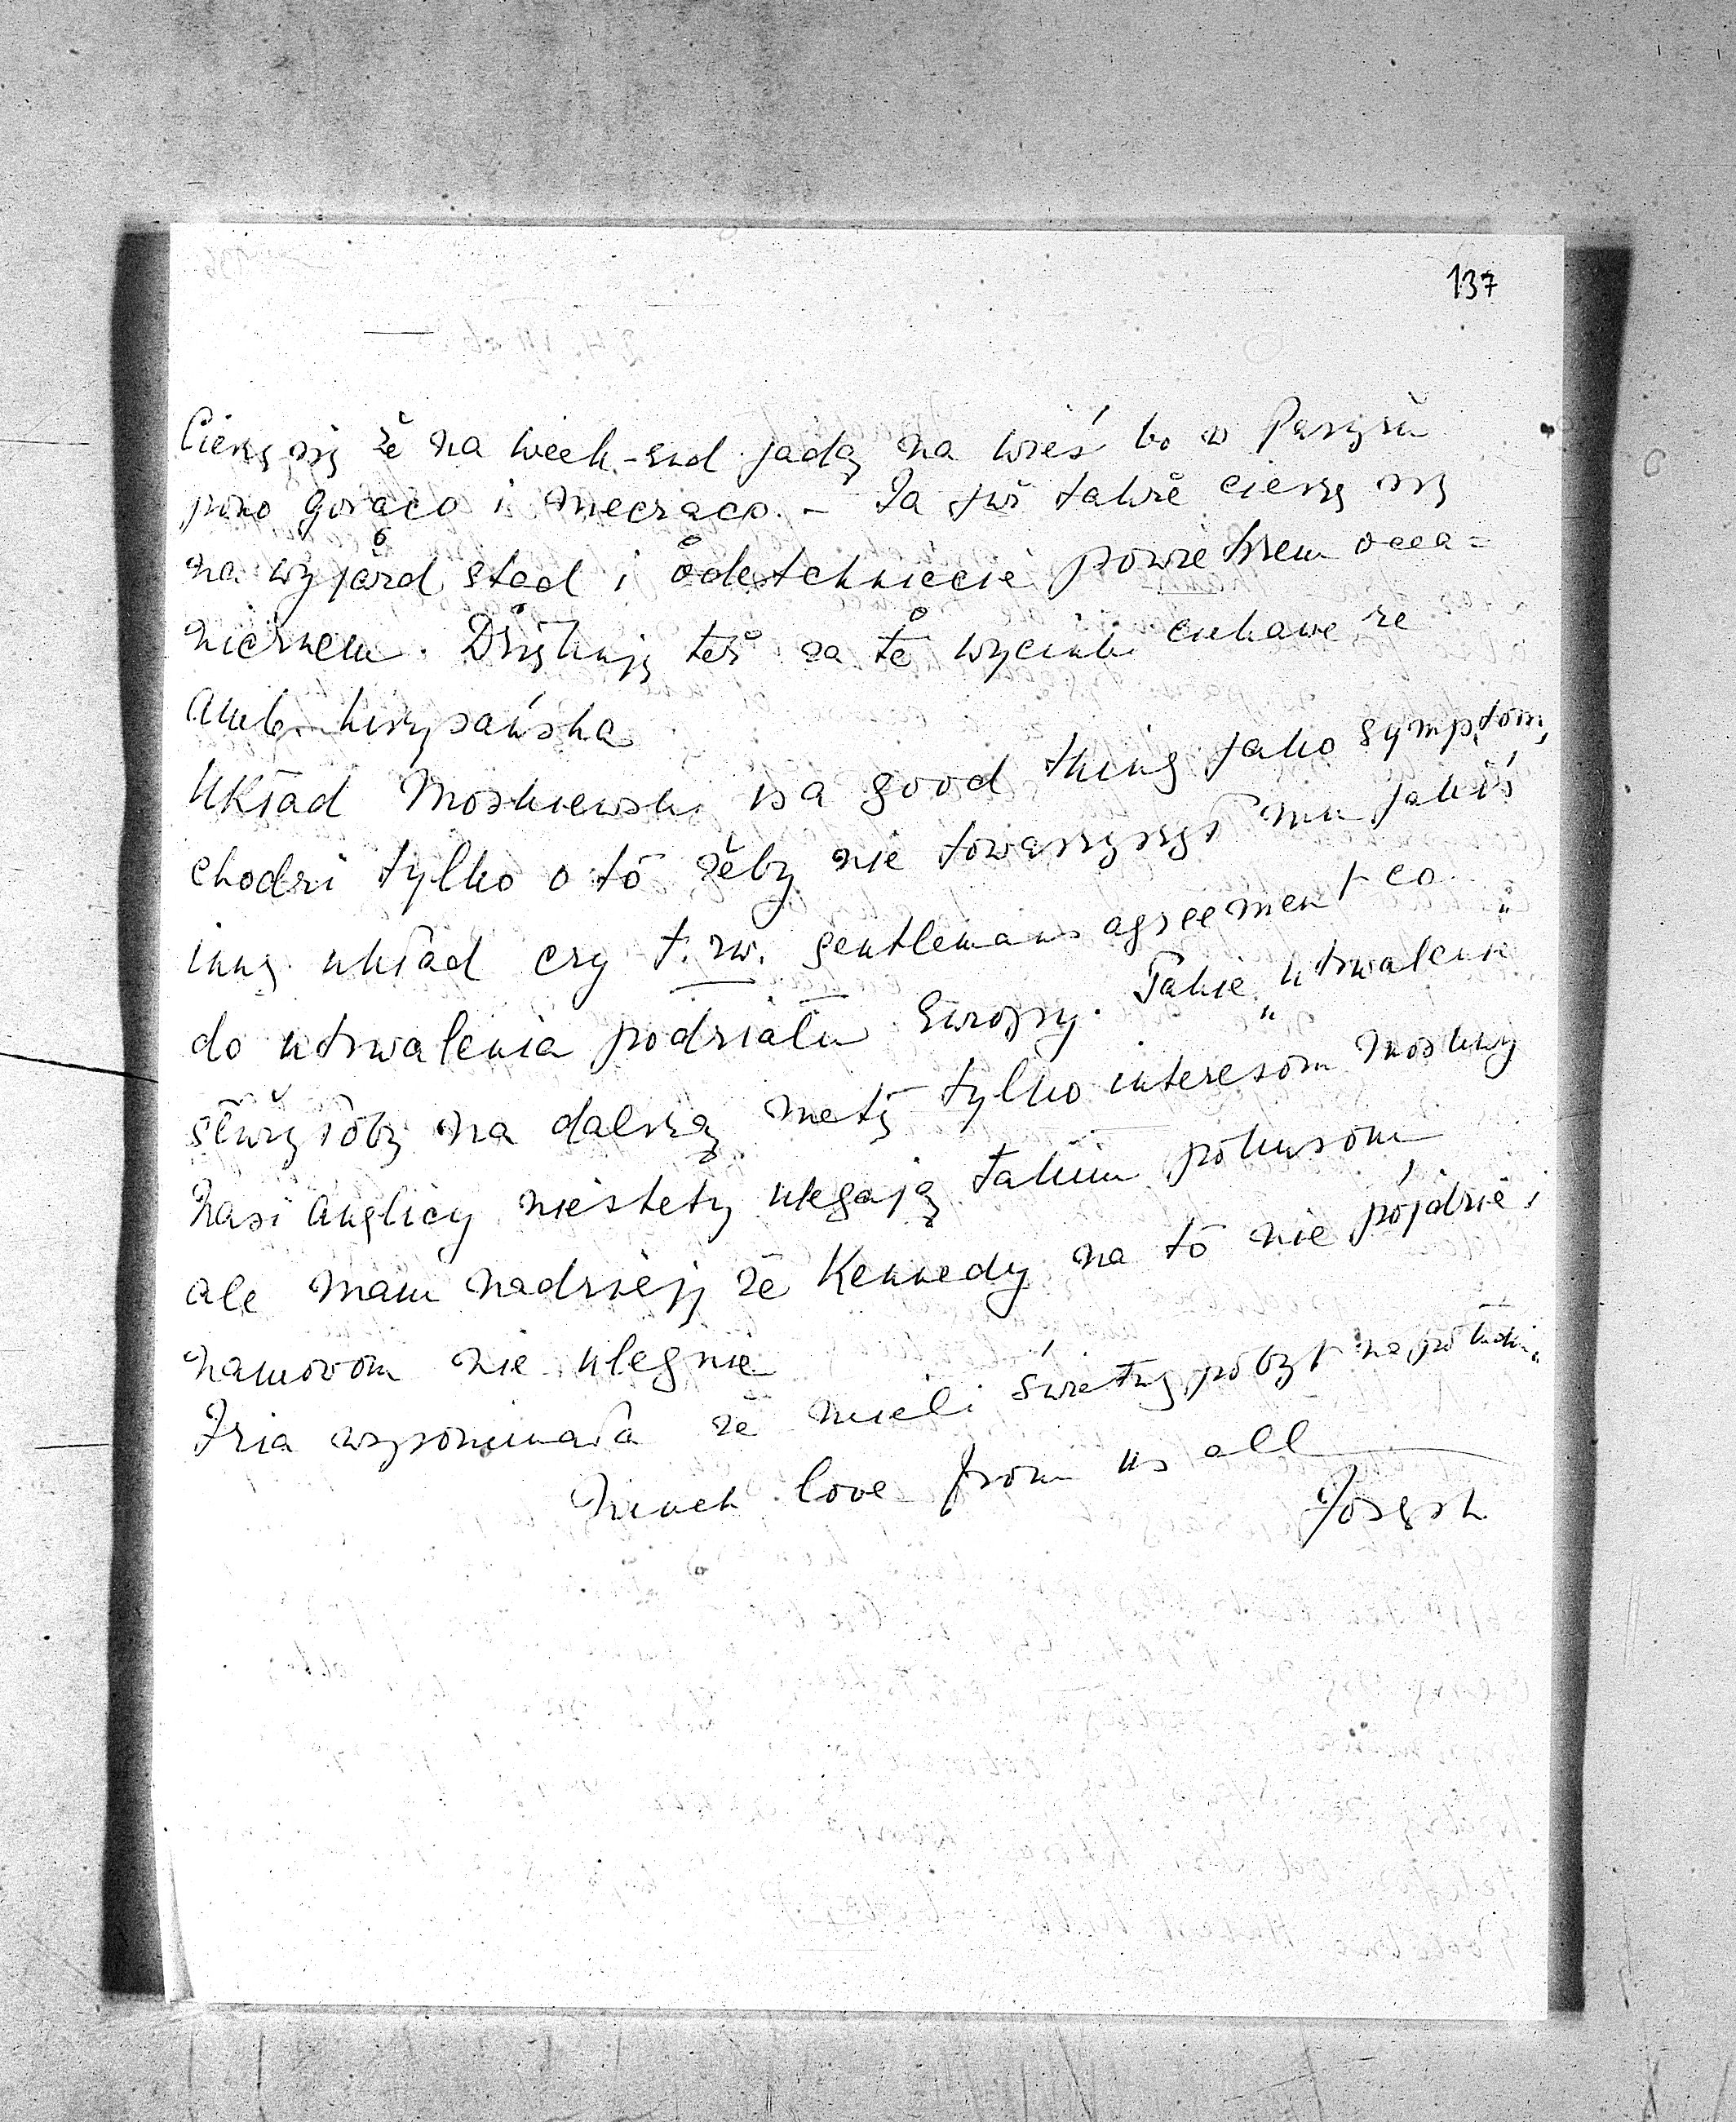 137
Cieszę się że na week-end jadą na wieś bo w Paryżu
pono gorąco i męcząco. – Ja już także cieszę się
na wyjazd stąd i odetchnięcie powietrzem ocea=
nicznem. Dziękuję też za te wycinki ciekawe ze
Układ Moskiewski is a good thing jako symptom,
chodzi tylko o to żeby nie towarzyszył mu jakiś
inny układ czy t. zw. gentlemans agreement co
do utrwalenia podziału Europy. Takie „utrwalenie"
służyłoby na dalszą metę tylko interesom Moskwy
Nasi Anglicy niestety ulegają takim pokusom
ale mam nadzieję że Kennedy na to nie pójdzie i
namowom nie ulegnie
Izia wspominała że mieli świetny pobyt na południu
Much love from us all
Joseph